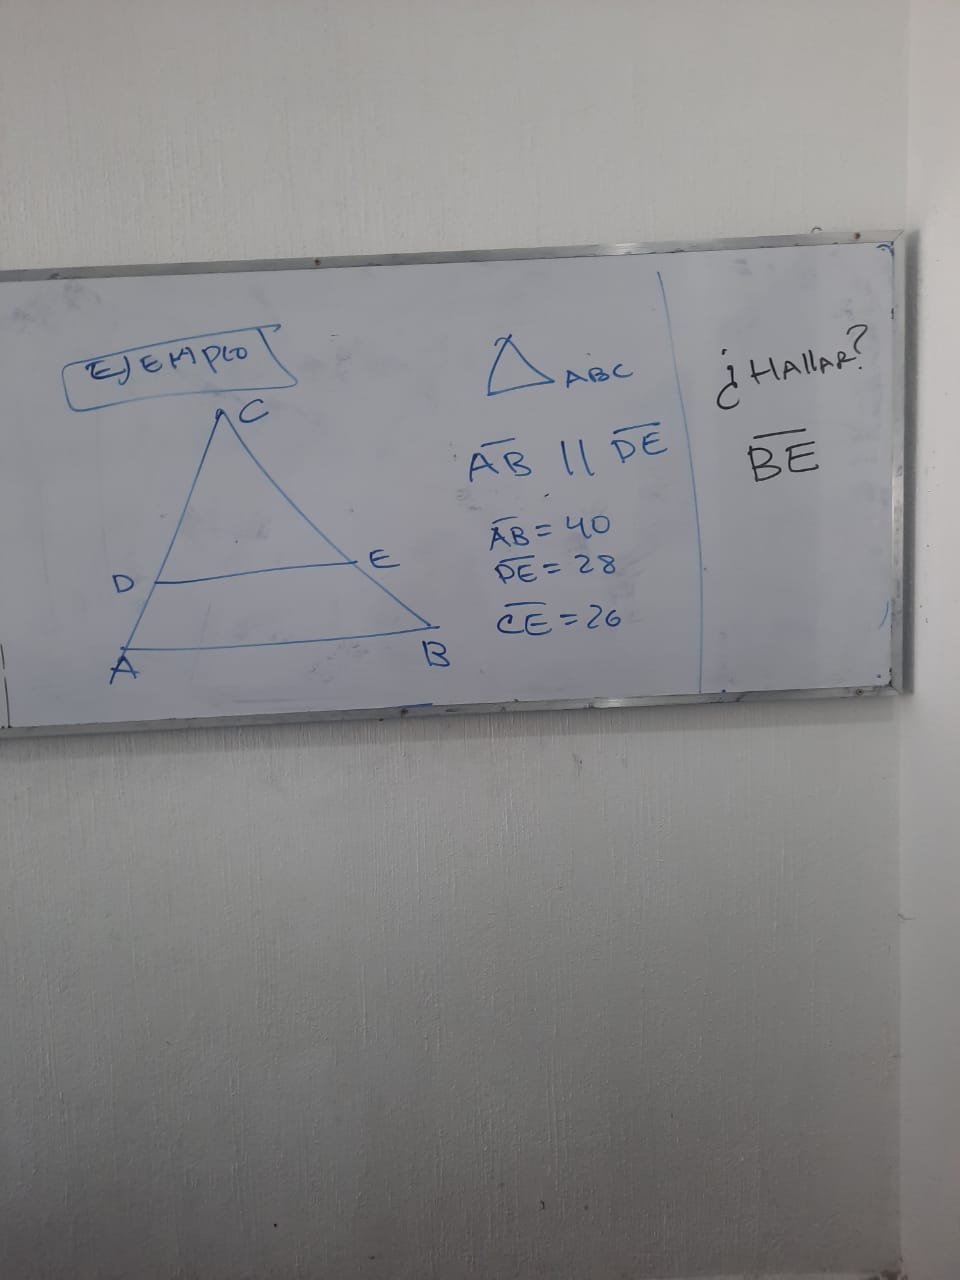 EJEMPLO
C
D
E
A
B
△ABC
A̅B̅ || D̅E̅
A̅B̅ = 40
D̅E̅ = 28
C̅E̅ = 26
¿HAllAR?
B̅E̅